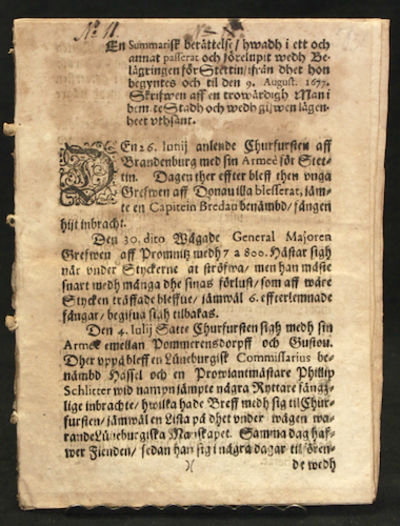 No. 11.
En Summarisk berättelse / hwadh i ett och
annat passerat och förelupit wedh Be-
lägringen för Stettin / ifrån dhet hon
begyntes och til den 9. August. 1677.
Skrifwen aff en trowärdigh Man i
bem.te Stadh och wedh gifwen lägen-
heet vthsänt.
DEn 26. Iunij anlende Churfursten aff
Brandenburg med sin Armeè för Stet-
tin. Dagen ther effter bleff then vnga
Grefwen aff Donau illa blesserat, jäm-
te en Capitein Bredau benämbd / fången
hijt inbracht.
Den 30. dito Wågade General Majoren
Grefwen aff Promnitz medh 7 a 800. Hästar sigh
när vnder Styckerne at ströfwa / men han måste
snart medh många dhe sinas förlust / som aff wåre
Stycken träffade bleffue / jämwäl 6. effterlemnade
fångar / begifua sigh tilbakas.
Den 4. Iulij Satte Churfursten sigh medh sin
Armeè emellan Pommerensdorpff och Gustou.
Dher vppå bleff en Lüneburgisk Commissarius be-
nämbd Hassel och en Prowiantmästare Phillip
Schlitter wid nampn jämpte några Ryttare fäng-
lige inbrachte / hwilka hade Breff medh sig til Chur-
fursten / jämwäl en Lista på dhet vnder wägen wa-
rande Lüneburgiska Manskapet. Samma dag haf-
wer Fienden / sedan han sig i några dagar til fören-
de wedh
)(